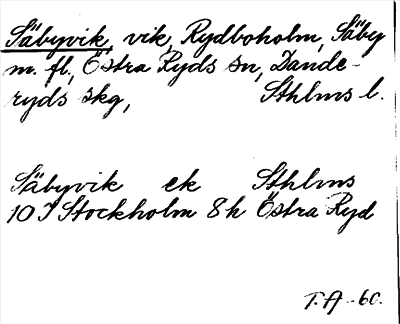 Säbyvik, vik, Rydboholm, Säby
m. fl., Östra Ryds sn, Dande-
ryds skg, Sthlms l.
Säbyvik ek Sthlms
10 I Stockholm 8h Östra Ryd
T. A. -60.